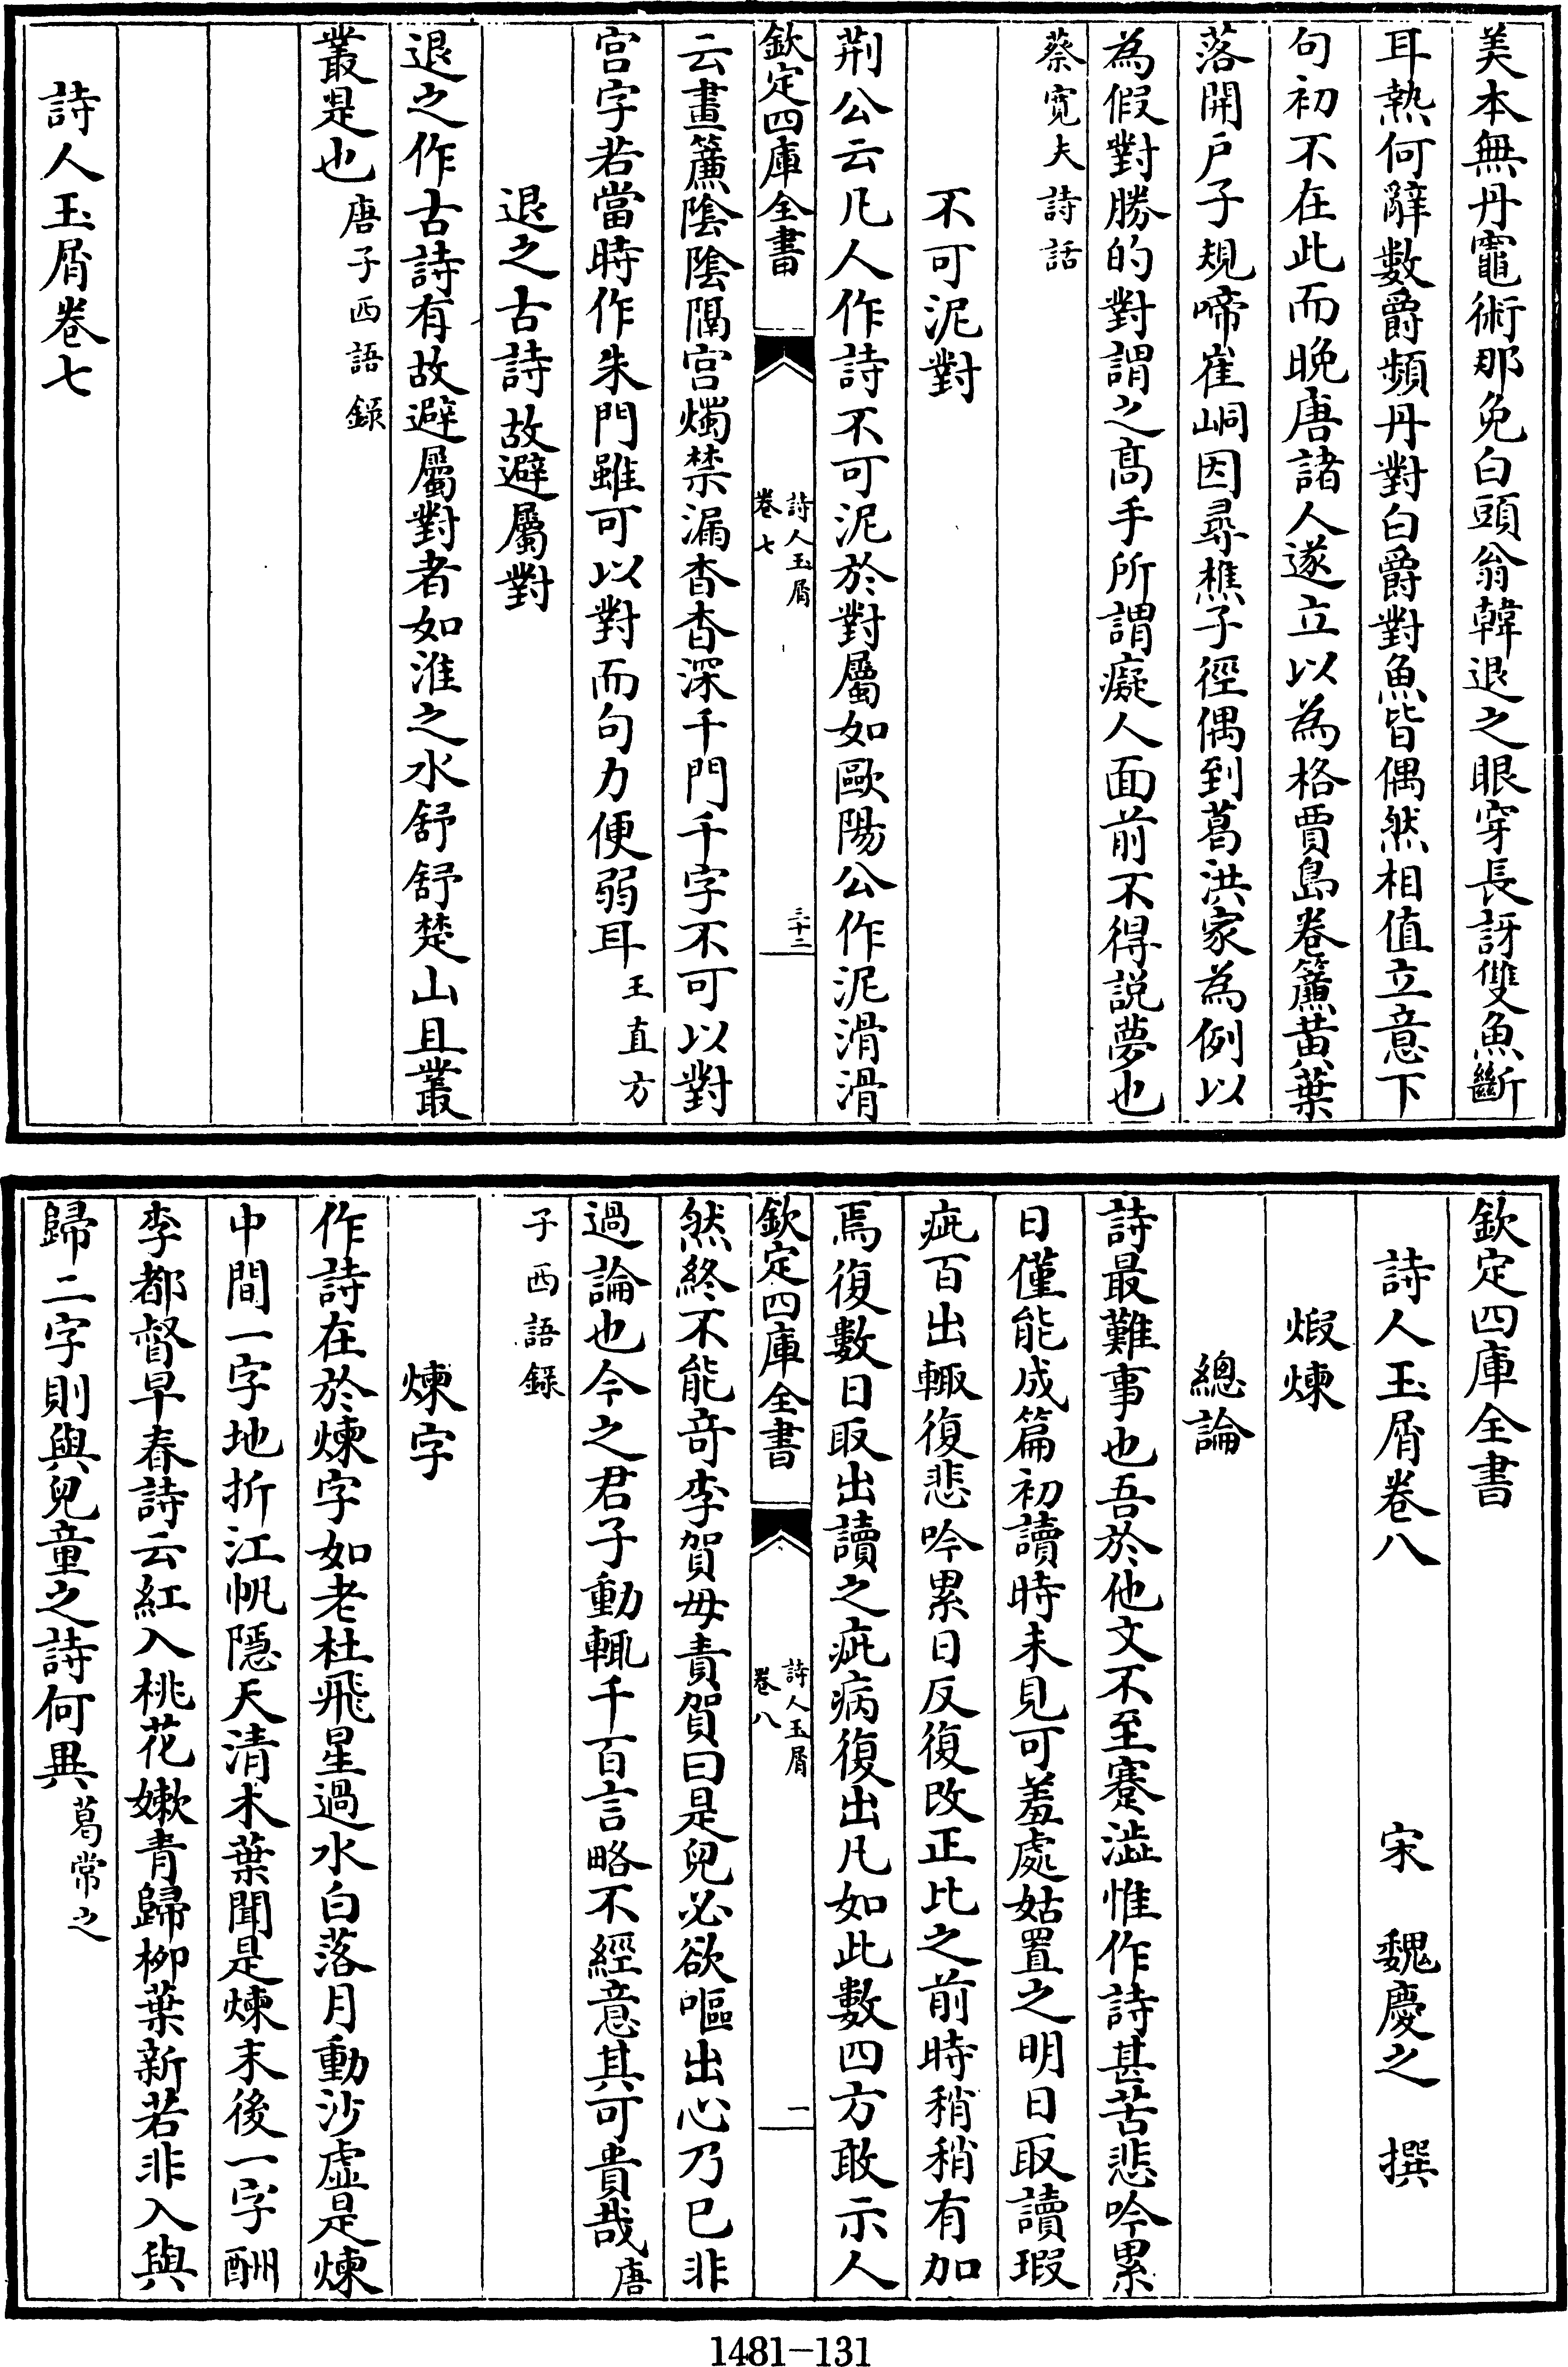 美本無丹竈術那免白頭翁韓退之眼穿長訝雙魚斷
耳熱何辭數爵頻丹對白爵對魚皆偶然相值立意下
句初不在此而晚唐諸人遂立以為格賈島卷簾黄葉
落開户子規啼崔峒因尋樵子徑偶到葛洪家為例以
為假對勝的對謂之髙手所謂癡人面前不得説夢也
蔡寛夫詩話
不可泥對
荆公云凡人作詩不可泥於對屬如歐陽公作泥滑滑
欽定四庫全書
詩人玉屑
卷七
三十二
云畫簾陰陰隔宫燭禁漏杳杳深千門千字不可以對
宫字若當時作朱門雖可以對而句力便弱耳王直方
退之古詩故避屬對
退之作古詩有故避屬對者如淮之水舒舒楚山且叢
叢是也唐子西語錄
詩人玉屑卷七
欽定四庫全書
詩人玉屑卷八
宋 魏慶之 撰
煅煉
總論
詩最難事也吾於他文不至蹇澁惟作詩甚苦悲吟累
日僅能成篇初讀時未見可羞處姑置之明日取讀瑕
疵百出輒復悲吟累日反復改正比之前時稍稍有加
焉復數日取出讀之疵病復出凡如此數四方敢示人
欽定四庫全書
詩人玉屑
卷八
一
然終不能奇李賀毋責賀曰是兒必欲嘔出心乃已非
過論也今之君子動輒千百言略不經意其可貴哉唐
子西語錄
煉字
作詩在於煉字如老杜飛星過水白落月動沙虛是煉
中間一字地折江帆隱天清木葉聞是煉末後一字酬
李都督早春詩云紅入桃花嫩青歸栁葉新若非入與
歸二字則與兒童之詩何異葛常之
1481-131